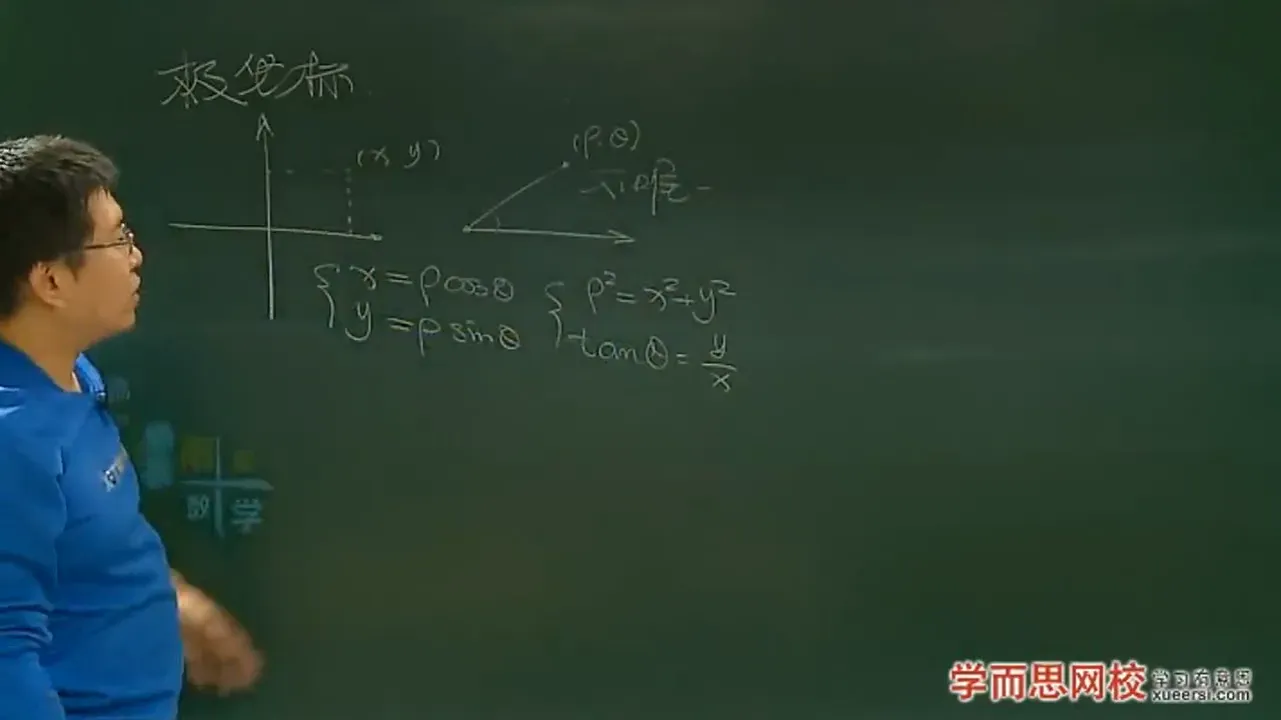 极坐标
(x, y)
(ρ, θ)
{ x = ρcosθ
y = ρsinθ
{ ρ² = x² + y²
tanθ = y/x
数学
学而思网校
学习有意思
xueersi.com